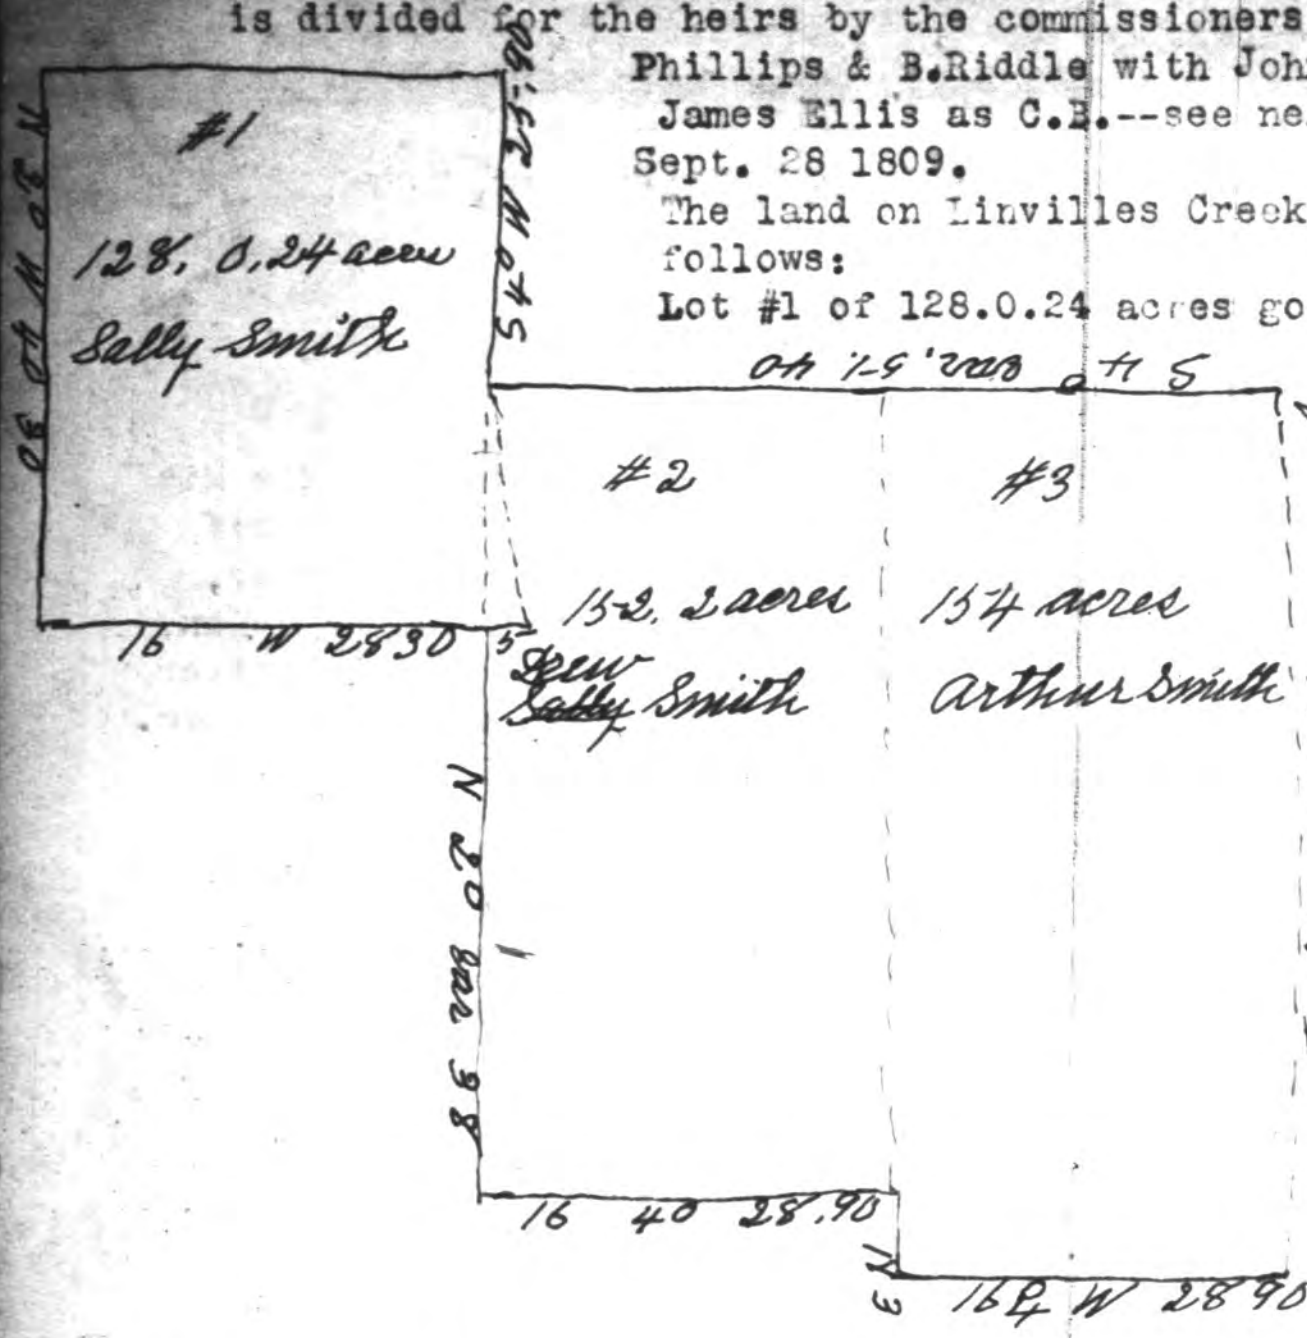 is divided for the heirs by the commissioners
Phillips & B.Riddle with Joh
James Ellis as C.B.--see ne
Sept. 28 1809.
The land on Linvilles Creek
follows:
Lot #1 of 128.0.24 acres go
#1
128, 0.24 acres
Sally Smith
N 20 W 40 30
S 40 W 23.90
S 40 51.40
#2
152. 2 acres
Drew
Sally Smith
#3
154 acres
Arthur Smith
16 W 28 30
5
N 20 38
16 40 28.90
N 3
16 W 28 90